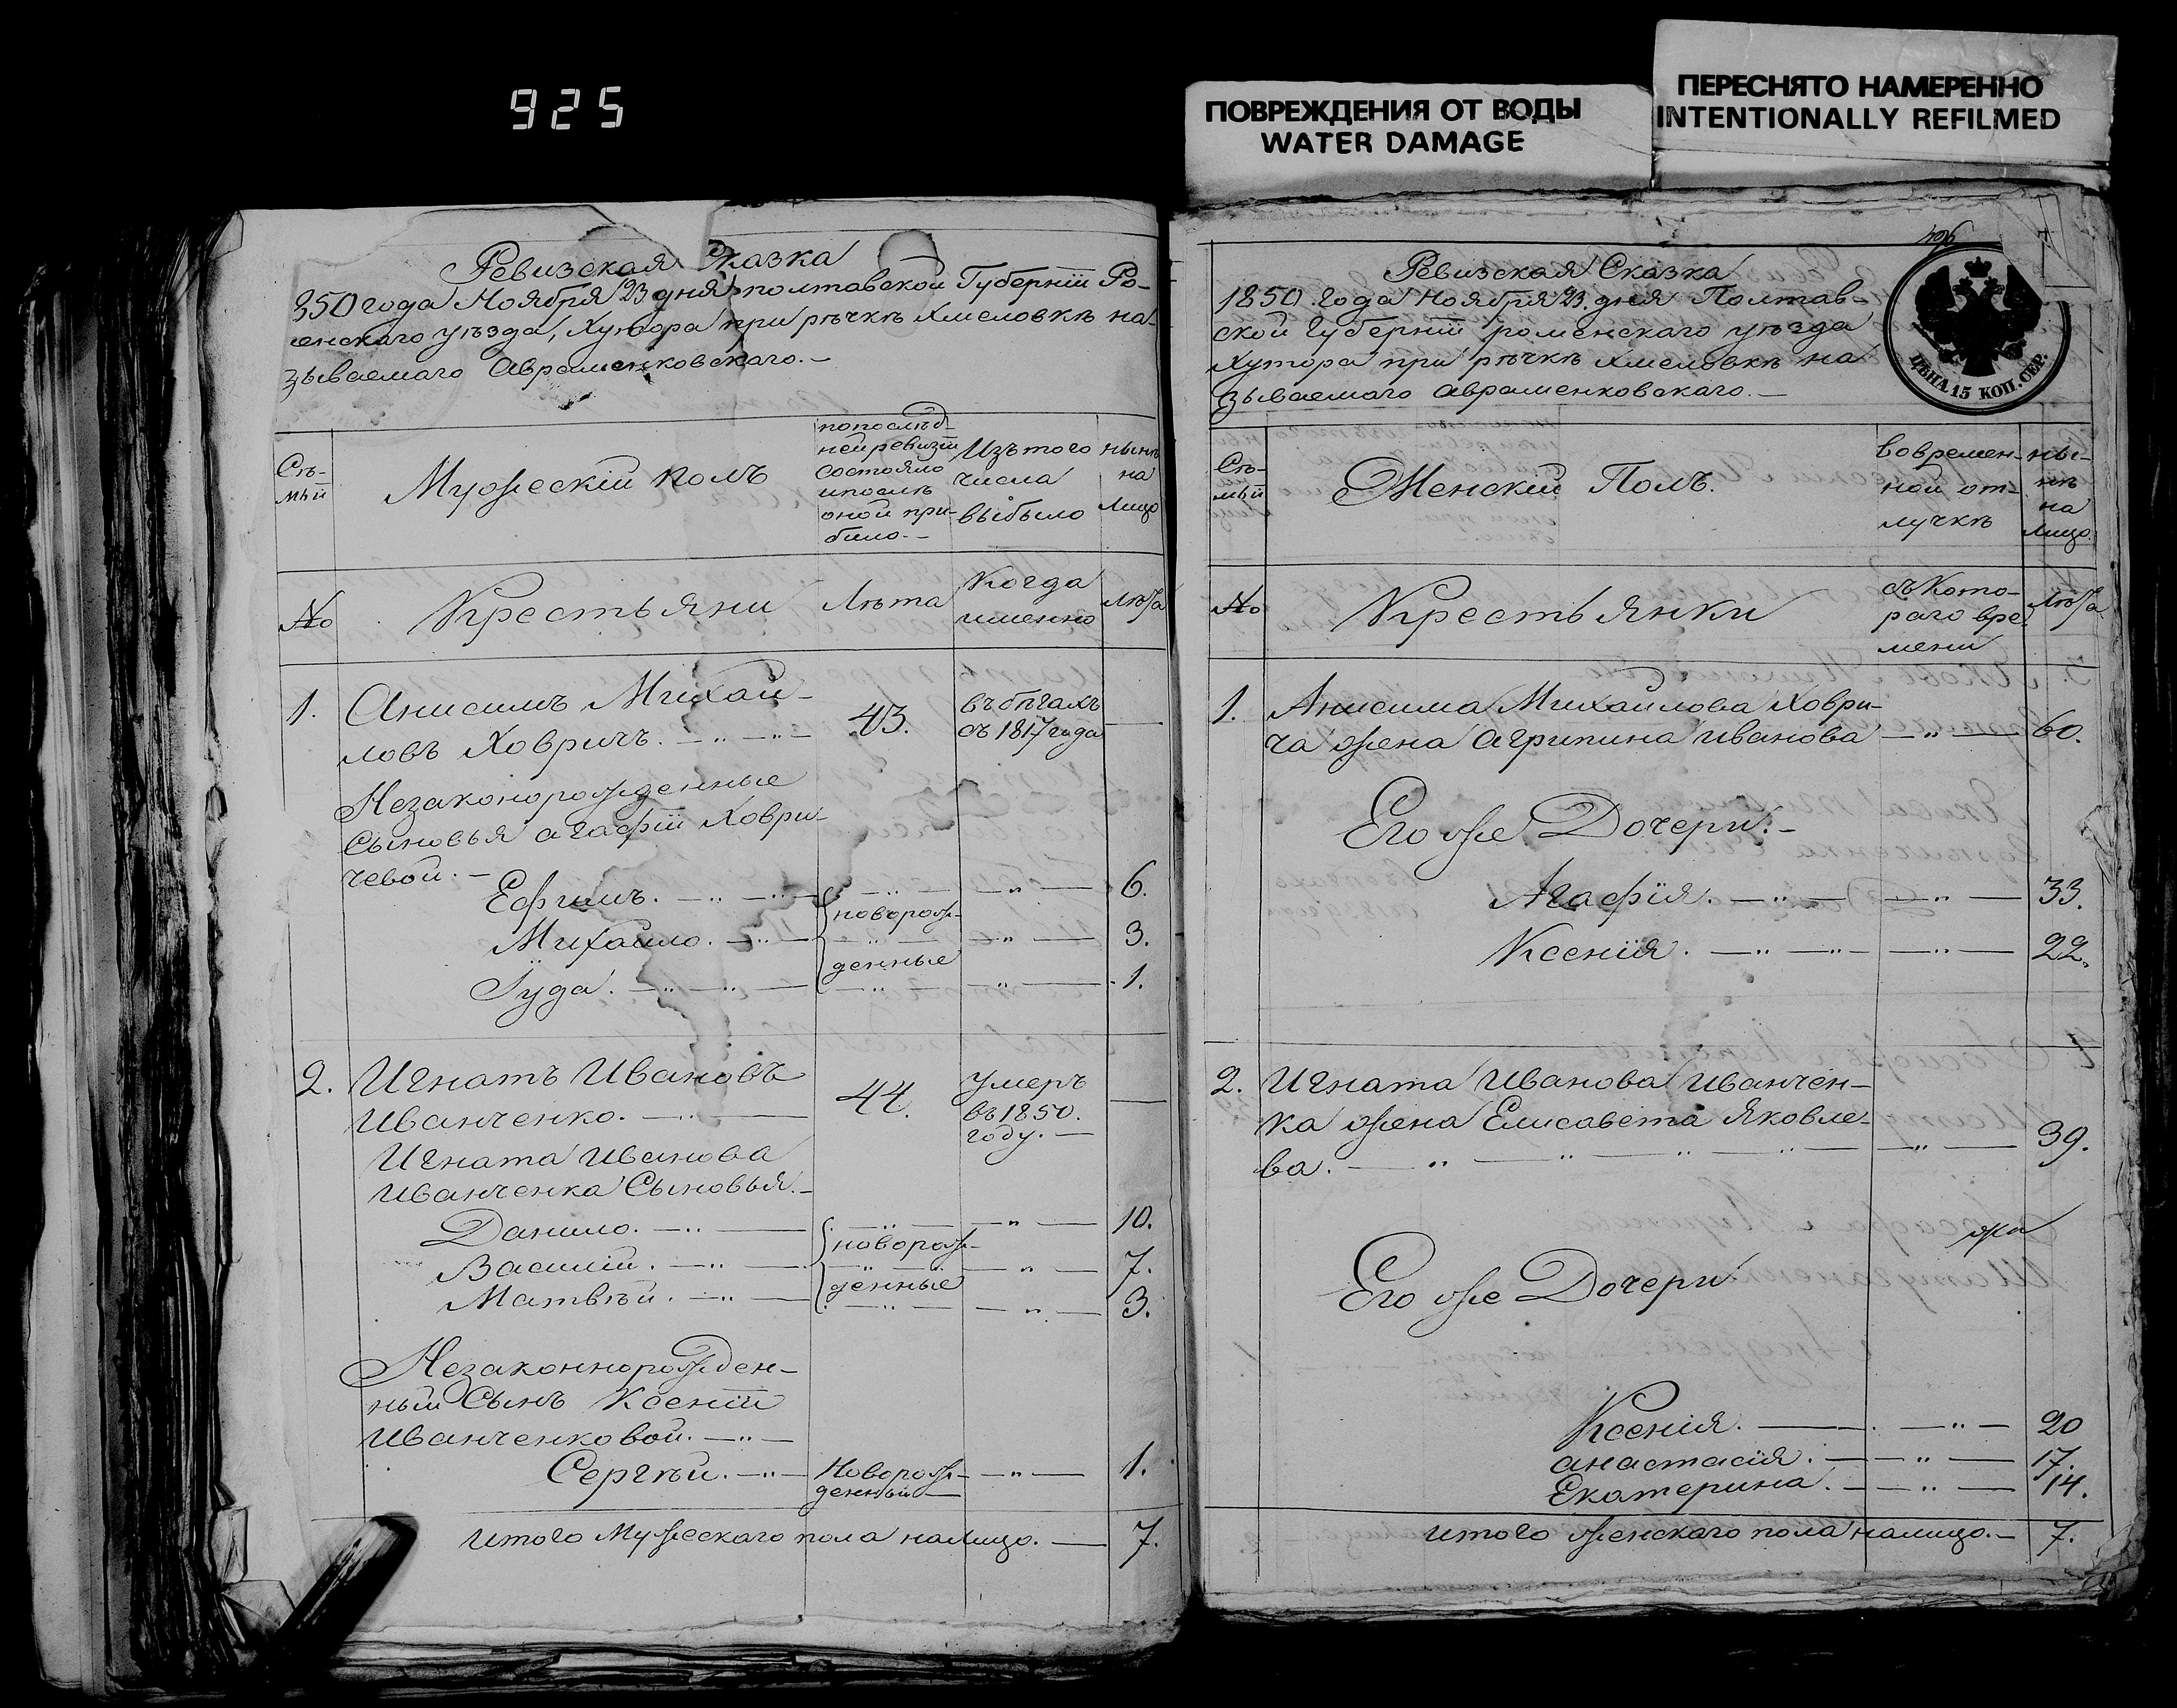 925
ПОВРЕЖДЕНИЯ ОТ ВОДЫ
WATER DAMAGE
ПЕРЕСНЯТО НАМЕРЕННО
INTENTIONALLY REFILMED
Ревизская Сказка
850 года Ноября 23 дня полтавской Губерніи Ро-
менскаго уѣзда, Хутора при рѣчкѣ Хмеловкѣ на-
зываемаго Авраменковскаго.-
Сѣ-
мьи
Мужескій полъ
попослѣд-
ней ревизіи
состояло
ипослѣ
оной при-
было.-
Изъ того
числа
выбыло
нынѣ
на
лицо
No
Крестьяни
Лѣта
Когда
именно
Лѣта
1. Анисимъ Михай-
ловъ Ховричъ. 43. въ бѣгахъ
съ 1817 года
Незаконорожденные
Сыновья агафіи Ховри-
чевой.-
Ефимъ. 6.
новорож-
Михайло. 3.
денные
Іуда. 1.
2. Игнатъ Ивановъ
Иванченко. 44. умеръ
въ 1850.
году.-
Игната Иванова
Иванченка Сыновья.-
Данило. 10.
новорож-
Василій. 7.
денные
Матвѣй. 3.
Незаконнорожден-
ный Сынъ Ксеніи
Иванченковой.
Сергѣй. Новорож- 1.
денный
итого Мужескаго пола налицо. 7.
496
Ревизская Сказка
1850 года Ноября 23 дня Полтав-
ской Губерніи роменскаго уѣзда
Хутора при рѣчкѣ Хмеловкѣ на
зываемаго авраменковскаго.-
ЦѢНА 15 КОП. СЕР.
Сѣ-
мьи
Женскій Полъ.
вовремен-
ной от-
лучкѣ
ны-
нѣ
на
лицо.
No
Крестьянки
съ Кото-
раго вре-
мени
Лѣта
1. Анисима Михайлова Ховри-
ча жена агрипина иванова 60.
Его же Дочери.-
Агафія. 33.
Ксенія. 22.
2. Игната Иванова Иванчен-
ка жена Елисавета Яковле-
ва. 39.
Его же Дочери
Ксенія. 20
анастасія. 17.
Екатерина. 14.
итого женскаго пола налицо.- 7.